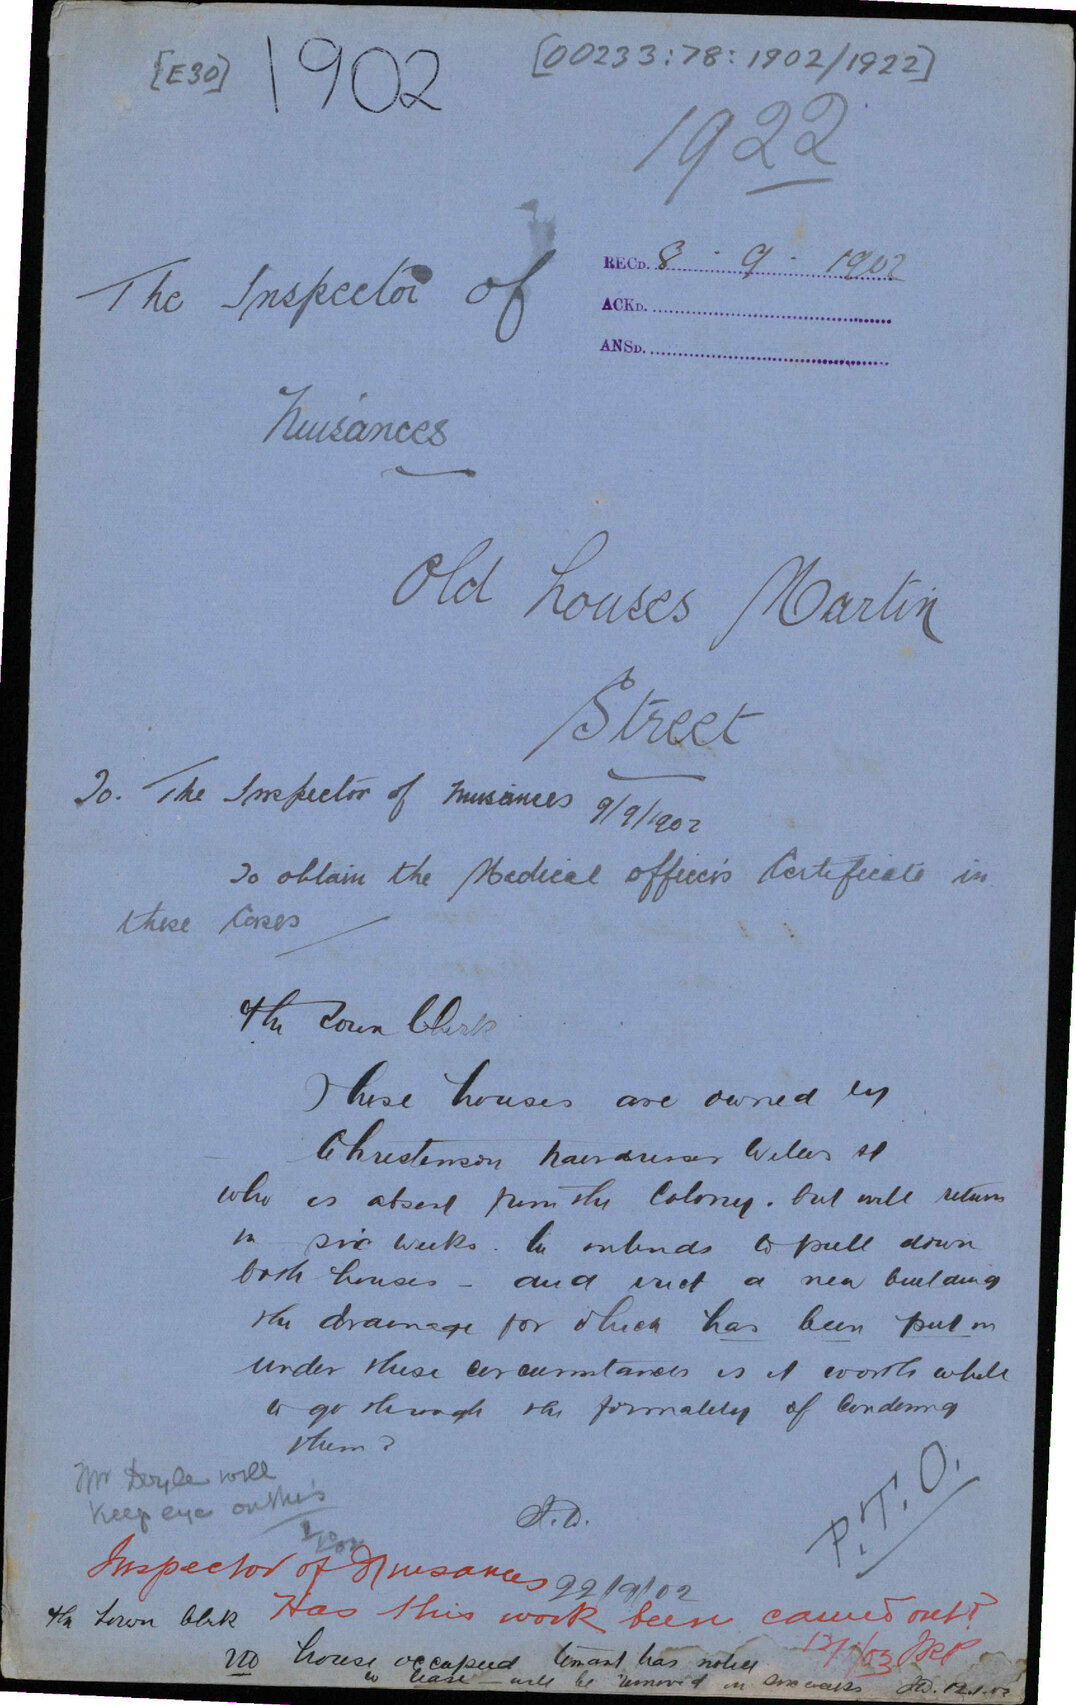 [E30] 1902 [00233:78:1902/1922]
1922
RECD. 8 - 9 - 1902
ACKD.
ANSD.
The Inspector of
Nuisances
Old houses Martin
Street
To. The Inspector of Nuisances 9/9/1902
To obtain the Medical officer's Certificate in
these Cases
The Town Clerk
These houses are owned by
Christenson hairdresser Willis St
who is absent from the Colony. but will return
in six weeks. he intends to pull down
both houses - and erect a new building
the drainage for which has been put in
under these circumstances is it worth while
to go through the formality of Condemng
them?
Mr Doyle will
keep eye on this
J.D.
P.T.O.
Inspector of Nuisances 22/9/02
Has this work been carried out?
12/1/03
The Town Clerk
no house occupied tenant has notice
to leave - will be removed in six weeks JD. 12.1.03